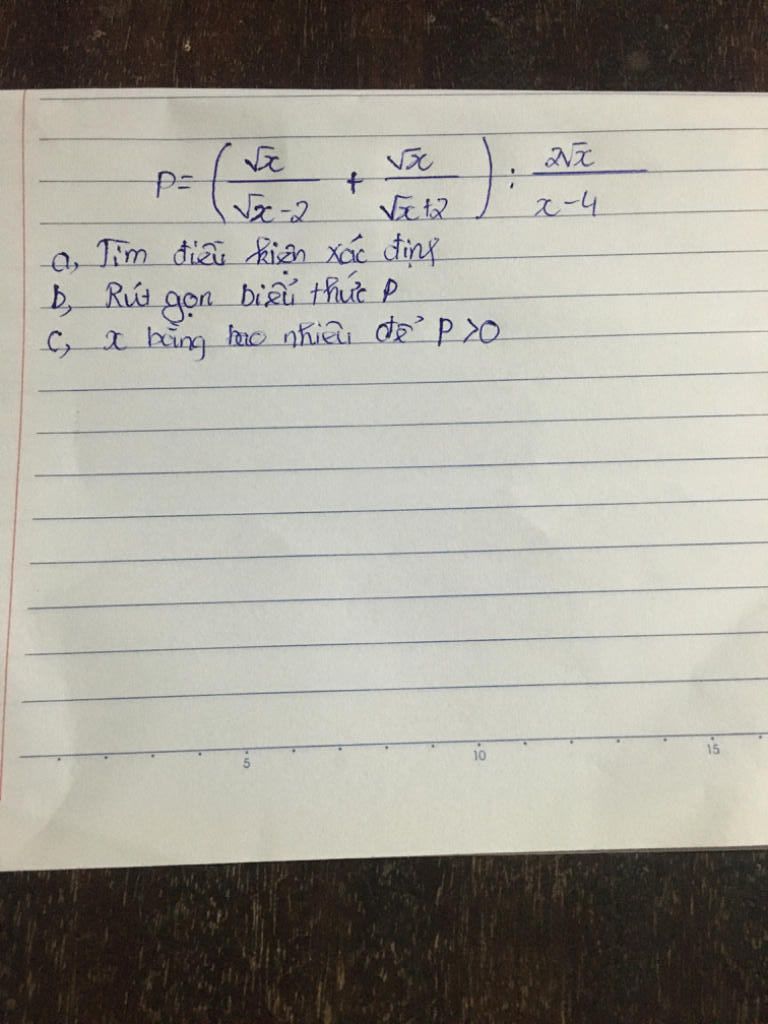 P= (√x/(√x-2) + √x/(√x+2)) : 2√x/(x-4)
a, Tìm điều kiện xác định
b, Rút gọn biểu thức P
c, x bằng bao nhiêu để P >0
5 10 15